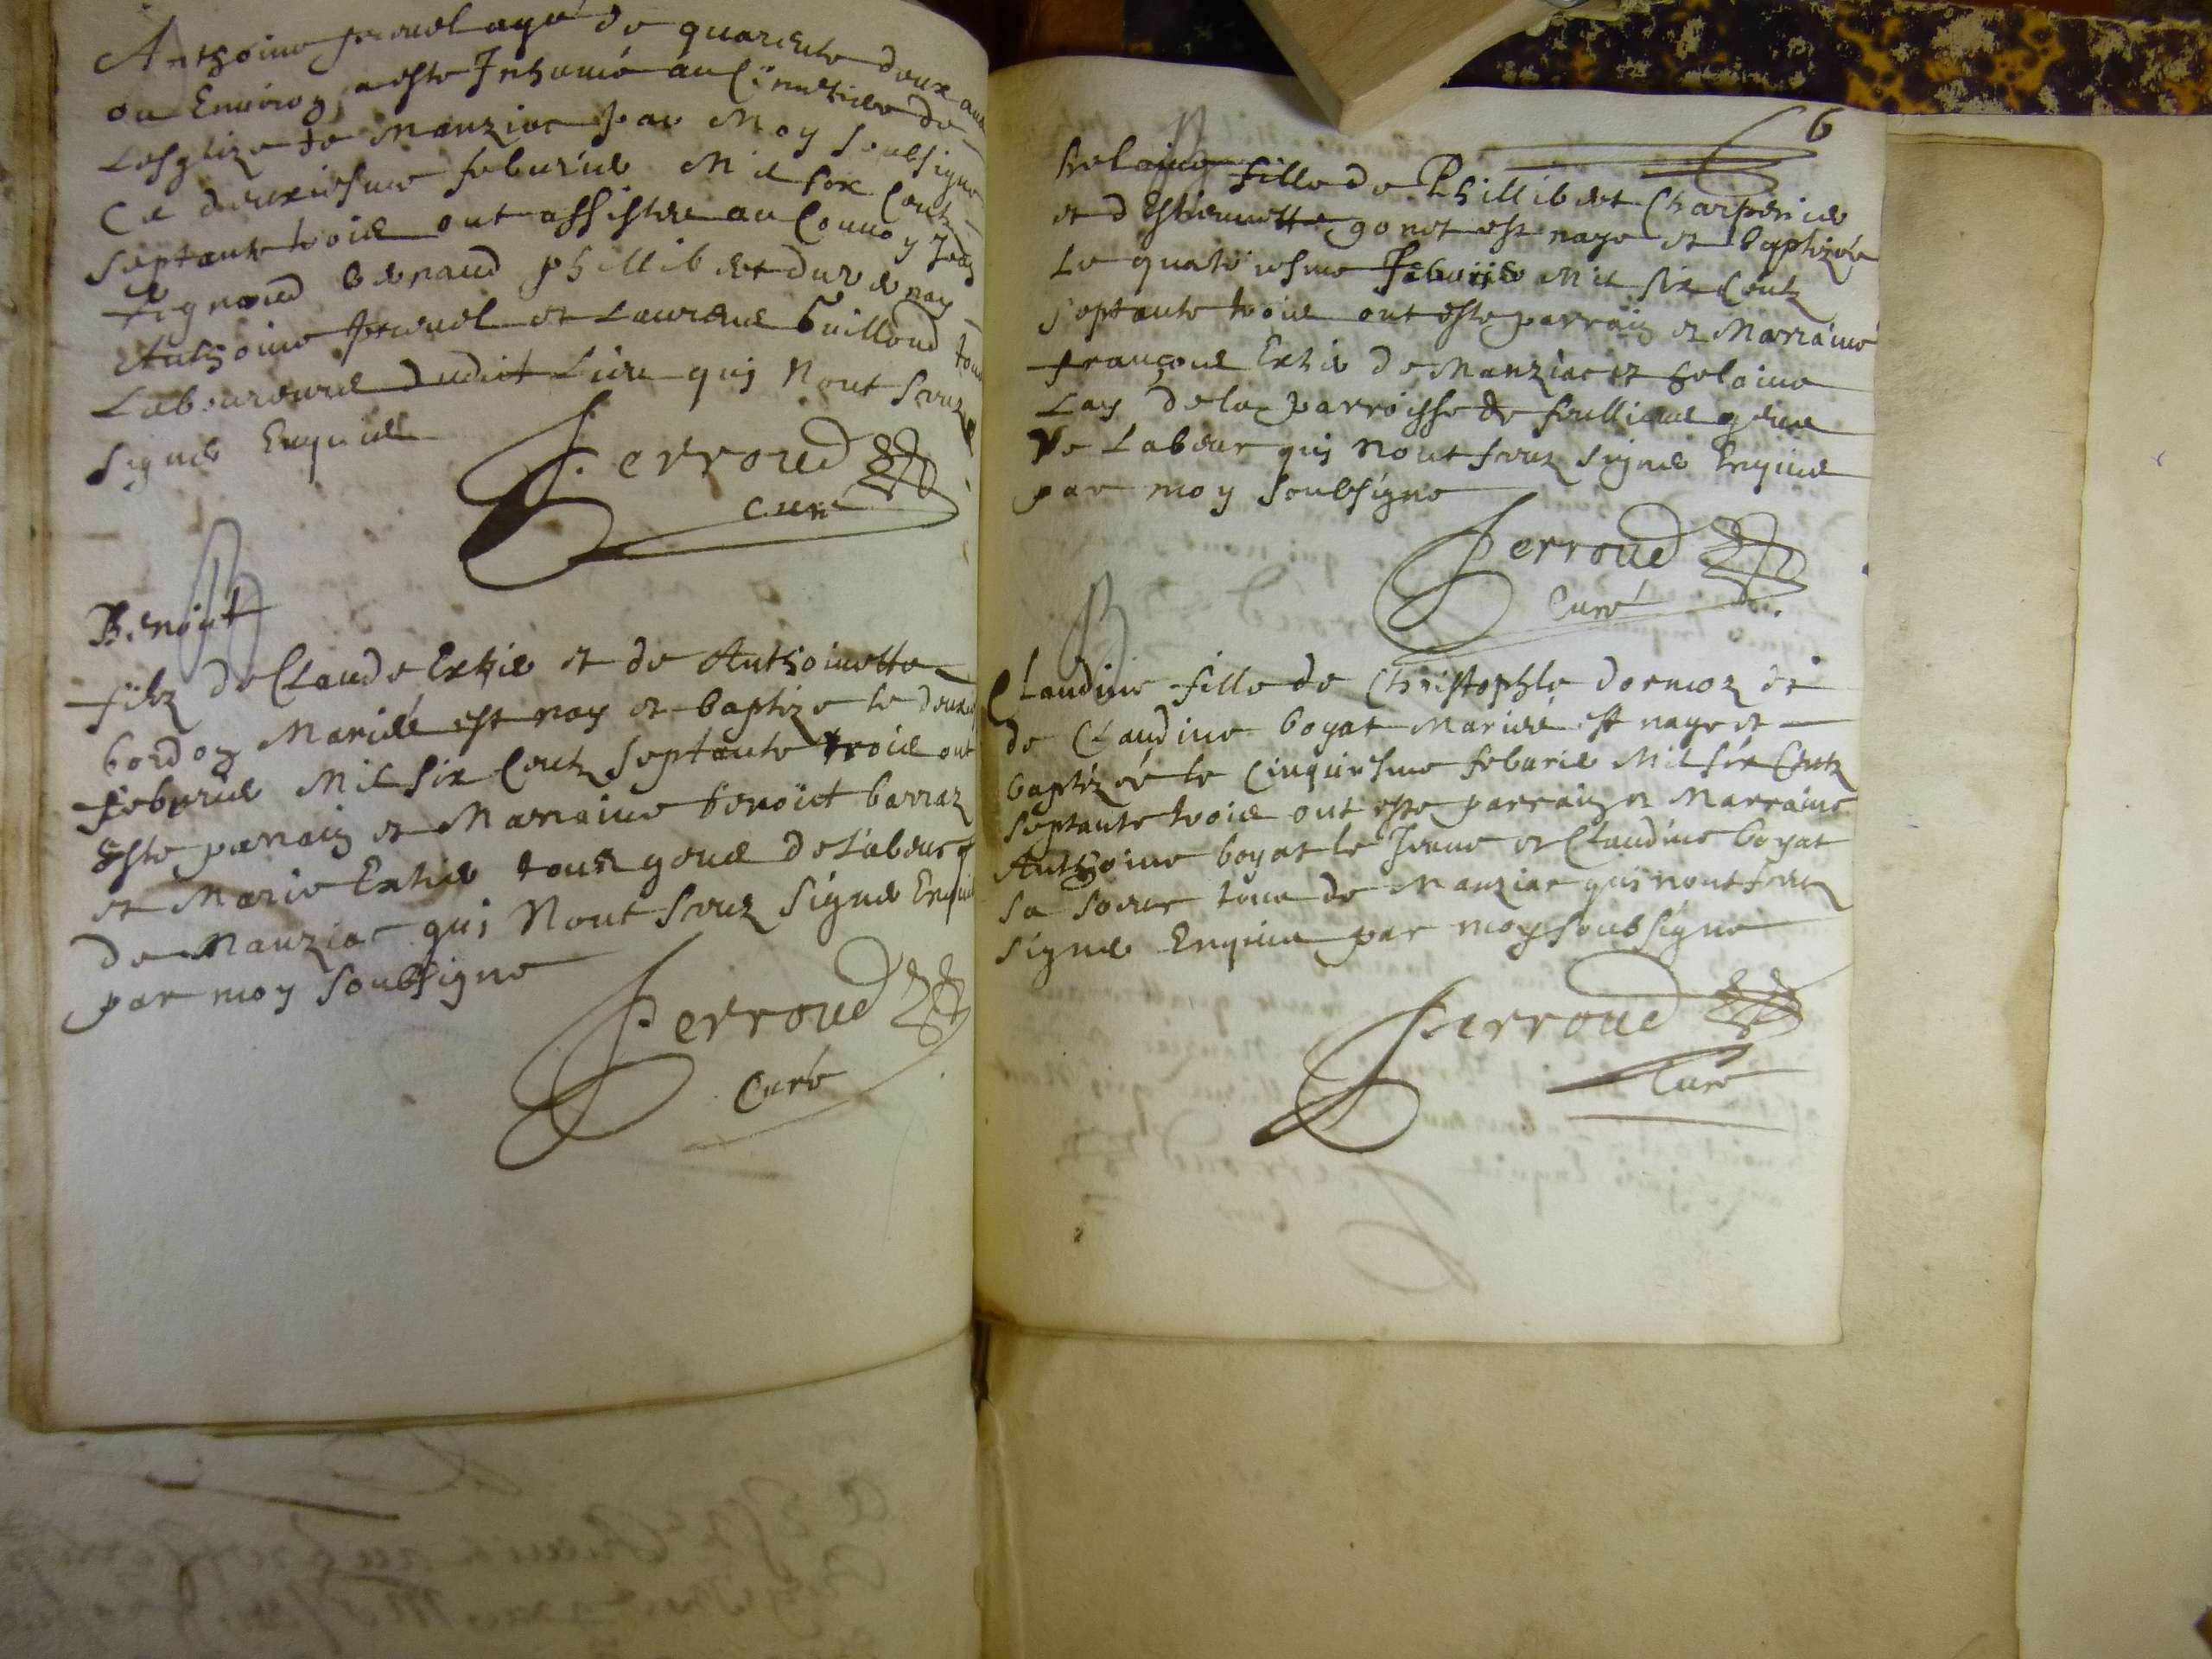 Anthoine feruel agé de quarente deux ans
ou Enuiron a esté Inhumé au Cimetiere de
Lesglize de Manziac par Moy soubsigné
Ce deuxiesme feburier Mil six Centz
septante trois ont assisté au Conuoy Jean
benaud phillibert
Anthoine feruel et Laurens Guilloud tous
Laboureurs dudict Lieu qui Nont sceuz
signer Enquis
Perroud
Curé
Benoict
filz de Claude Extier et de Anthoinette
bordon Mariés est nay et baptizé le deuxie
feburier Mil six Centz septante trois ont
esté parrain et Marraine benoict barraz
et Marie Extier tous gens de Labeur
de Manziac qui Nont sceuz signer Enquis
par moy soubsigné
Perroud
Curé
6
helaine fille de Phillibert Charpentier
et dEstiennette gonet est naye et baptizée
Le quatriesme feburier Mil six Centz
septante trois ont esté parrain et Marraine
françois Extier de Manziac et helaine
Lay de la parroisse de feullieus gens
de Labeur qui Nont sceuz signer Enquis
par moy soubsigné
Perroud
Curé
Claudine fille de Christophle dormoz et
de Claudine boyat Mariés est naye et
baptizée le Cinquiesme feburier Mil six Centz
septante trois ont esté parrain et Marraine
Anthoine boyat le Jeune et Claudine boyat
sa soeur tous de Manziac qui nont sceuz
signer Enquis par moy soubsigné
Perroud
Curé